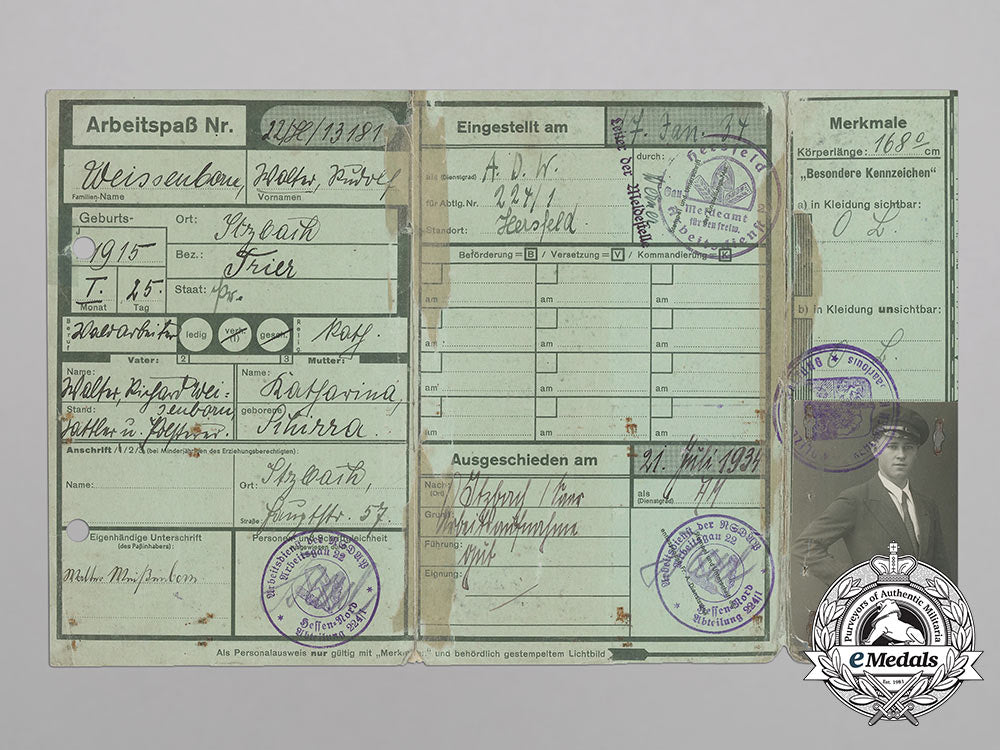 Arbeitspaß Nr. 22/ /13181
Weissenborn, Walter, Rudolf
Familien-Name Vornamen
Geburts-
Ort:
1915
Bez.: Trier
I. 25.
Staat: Pr.
Monat Tag
Beruf Waldarbeiter ledig verh. gesch. Relig. Kath.
Vater: 2 3 Mutter:
Name: Walter, Richard Wei-
senborn
Stand: Sattler u. Polsterer.
Name: Katharina,
geborene
Anschrift /1/2/3/ (bei Minderjährigen des Erziehungsberechtigten):
Name:
Ort:
Straße: Hauptstr. 57.
Eigenhändige Unterschrift
(des Paßinhabers):
Walter Weißenborn
Arbeitsdienst der NSDAP
Arbeitsgau 22
Hessen-Nord
Abteilung 224/1
Als Personalausweis nur gültig mit „Merkmalen" und behördlich gestempeltem Lichtbild
Eingestellt am 7. Jan. 34
als (Dienstgrad) A. D. W.
für Abtlg. Nr. 224/1
Standort: Hersfeld
durch:
Leiter der Meldestelle
Hersfeld
Meldeamt
für den freiw.
Arbeitsdienst
Beförderung = B / Versetzung = V / Kommandierung = K
am am am
am am am
am am am
am am am
Ausgeschieden am 21. Juli 1934
Nach: (Ort) Itzbach / Saar
als (Dienstgrad)
Grund: Arbeitsaufnahme
Führung: gut
Eignung:
Arbeitsdienst der NSDAP
Arbeitsgau 22
Hessen-Nord
Abteilung 224/1
Merkmale
Körperlänge: 168 cm
„Besondere Kennzeichen"
a) in Kleidung sichtbar:
b) in Kleidung unsichtbar:
Saarlouis
Purveyors of Authentic Militaria
eMedals
Est. 1981